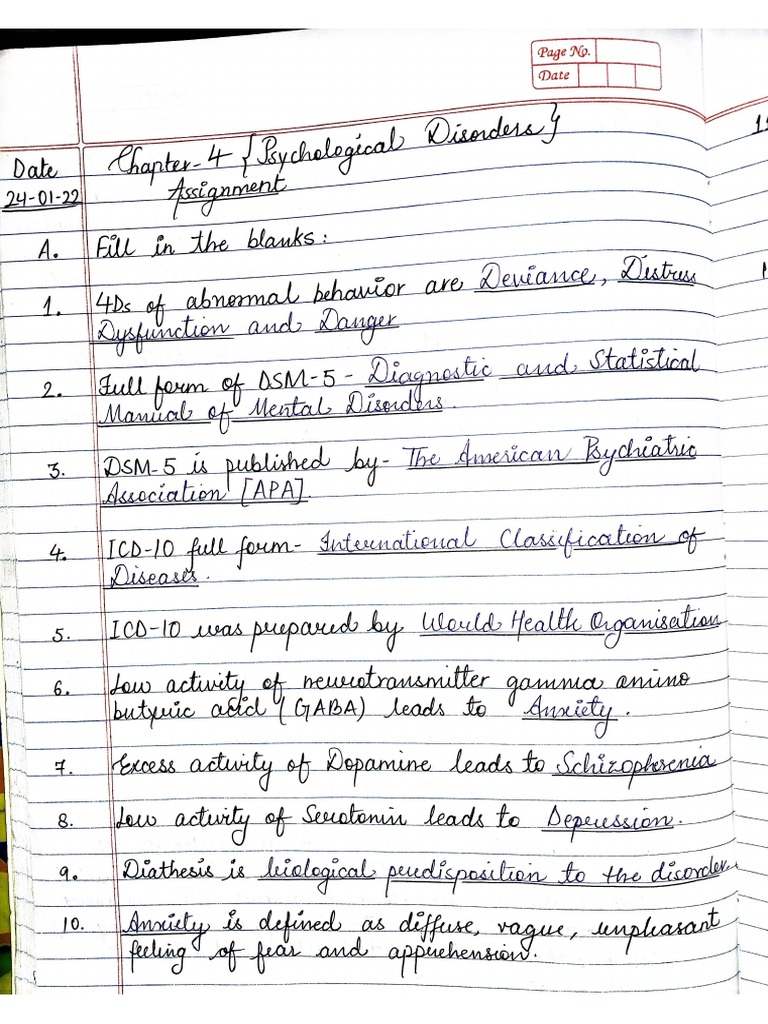 Page No.
Date
Date
24-01-22
Chapter-4 {Psychological Disorders}
Assignment
A. Fill in the blanks:
1. 4Ds of abnormal behavior are Deviance, Distress
Dysfunction and Danger
2. Full form of DSM-5 - Diagnostic and Statistical
Manual of Mental Disorders.
3. DSM-5 is published by- The American Psychiatric
Association [APA].
4. ICD-10 full form- International Classification of
Diseases.
5. ICD-10 was prepared by World Health Organisation
6. Low activity of neurotransmitter gamma amino
butyric acid (GABA) leads to Anxiety.
7. Excess activity of Dopamine leads to Schizophrenia
8. Low activity of Serotonin leads to Depression.
9. Diathesis is biological predisposition to the disorder.
10. Anxiety is defined as diffuse, vague, unpleasant
feeling of fear and apprehension.